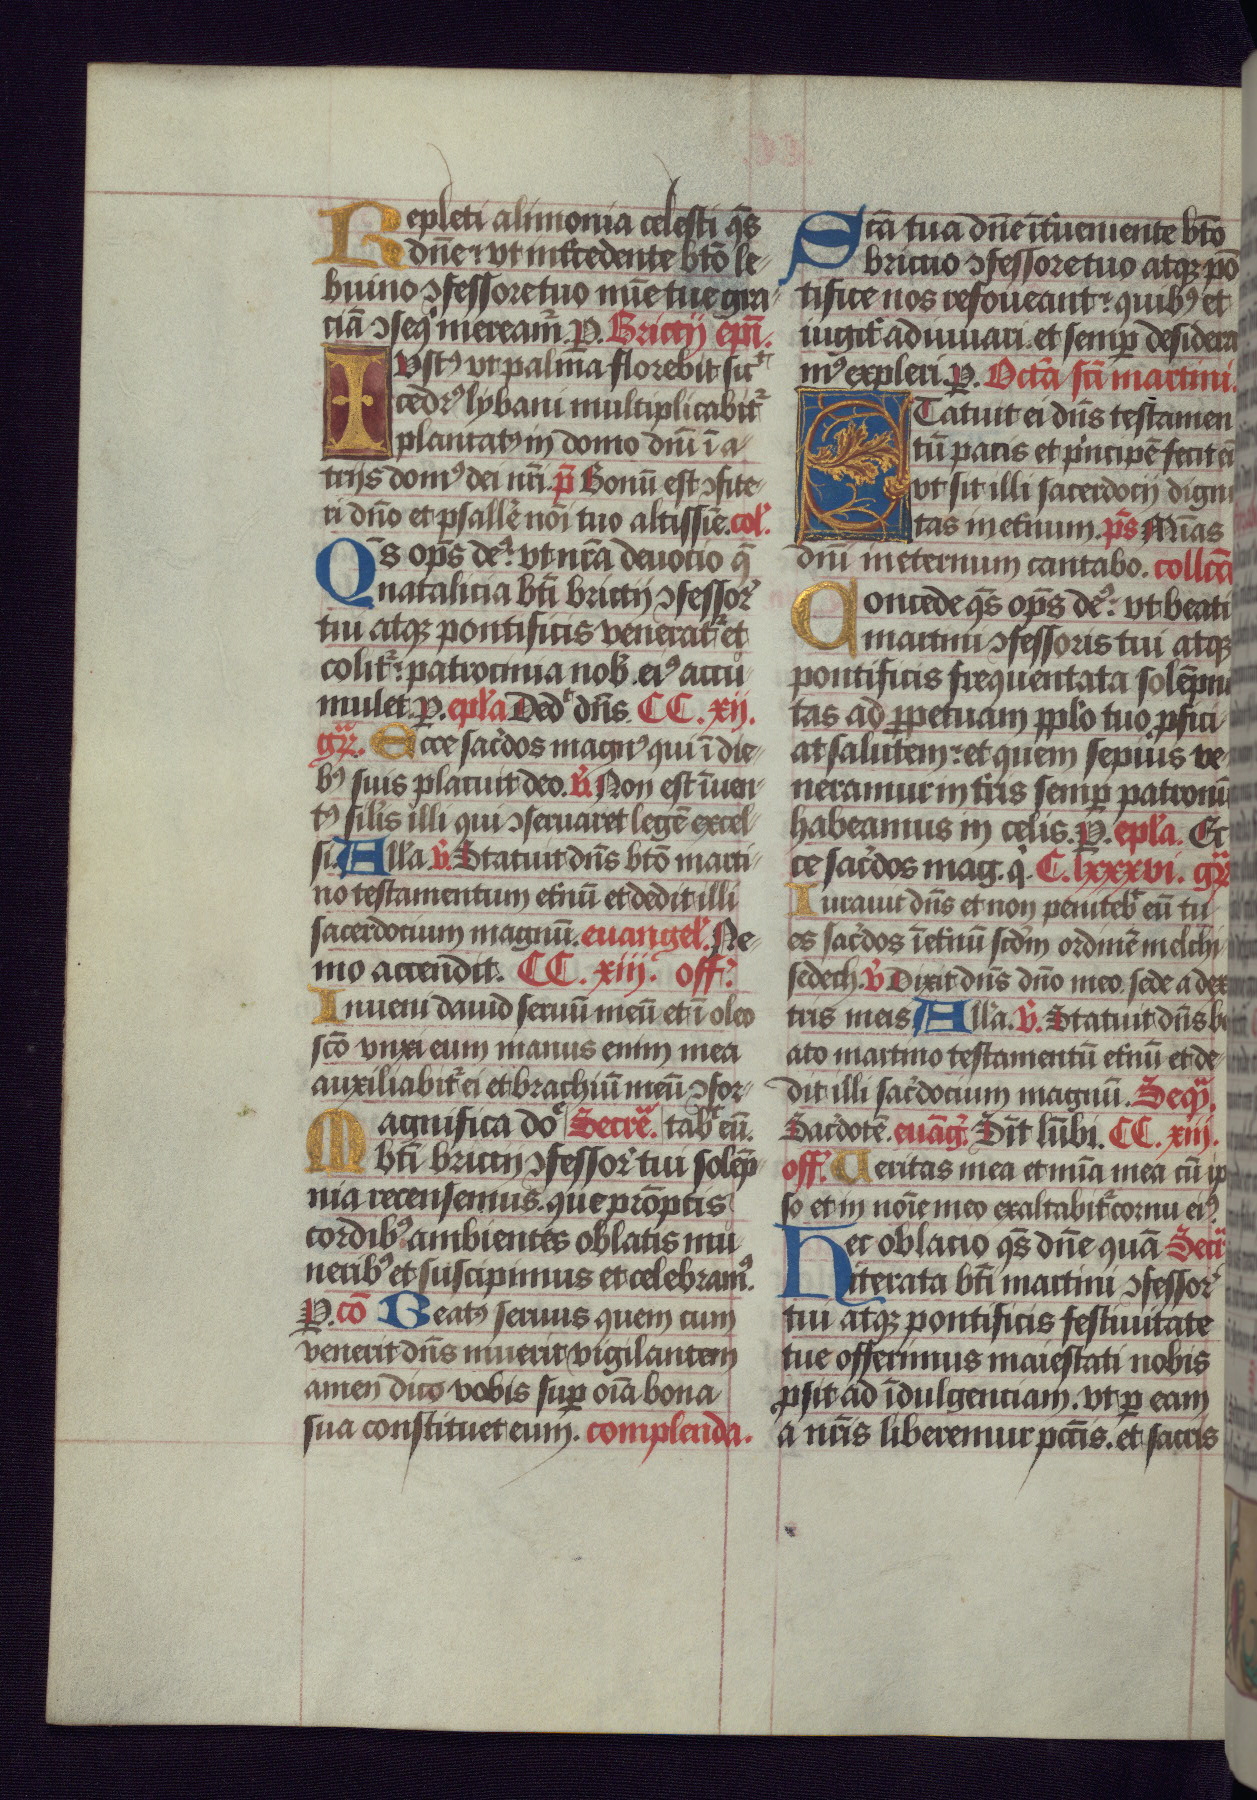 Repleti alimonia celesti q̄s
dn̄e: vt intercedente bt̄o le-
buino ↄfessore tuo mīe tue gra-
ciā ↄseq' mereamr̄. P. Briccij ep̄i.
Iust9 vt palma florebit sic̄
cedr9 lybani multiplicabit᷑
plantat9 in domo dn̄i ī a-
trijs dom9 dei nr̄i. p̄ Bonū est ↄfite-
ri dn̄o et psallē noī tuo altissīe. col'.
Q̄s op̄s de9: vt nr̄a deuocio q̄
natalicia bt̄i briccij ↄfessor'
tui atqꝫ pontificis venerat᷑ et
colit᷑: patrocinia nob' ei9 accu-
mulet. P. epl'a Ded' dn̄s. CC. xij.
gr̄. Ecce sac'dos magn9 qui ī die-
b9 suis placuit deo. v̄. Non est īuen-
t9 sil'is illi qui ↄseruaret legē excel-
si. All'a. v̄. Statuit dn̄s bt̄o marti-
no testamentum et'nū et dedit illi
sacerdocium magnū. euangel'. Ne-
mo accendit. CC. xiij. off.
Inueni dauid seruū meū et ī oleo
sc̄o vnxi eum manus enim mea
auxiliabit᷑ ei et brachiū meū ↄfor-
Magnifica do9 | Secre. | tab' eū.
bt̄i briccij ↄfessor' tui solēp-
nia recensemus. que prōptis
cordib9 ambientes oblatis mu-
nerib9 et suscipimus et celebram9.
P. cō Beat9 seruus quem cum
venerit dn̄s inuerit vigilantem
amen dico vobis sup oīa bona
sua constituet eum. complenda.
Sc̄a tua dn̄e īt'ueniente bt̄o
briccio ↄfessore tuo atqꝫ pō
tifice nos refoueant: quib9 et
iugit' adiuuari. et semp desidera
m9 expleri. P. Octā sc̄i martini.
STatuit ei dn̄s testamen
tū pacis et p'ncipē fecit eū
vt sit illi sacerdocij digni
tas in et'num. p̄s Mīas
dn̄i in eternum cantabo. collc̄a
Concede q̄s op̄s de9: vt beati
martini ↄfessoris tui atqꝫ
pontificis frequentata solēpni
tas ad ꝑpetuam ppl'o tuo ꝓfici-
at salutem: et quem sepius ve-
neramur in t'ris semp patronū
habeamus in celis. P. epl'a. Ec
ce sac'dos mag. q'. C. lxxxvi. gr̄
Iurauit dn̄s et non peniteb' eū tu
es sac'dos īet'nū scd'm ordinē melchi
sedech. v̄ Dixit dn̄s dn̄o meo sede a dex
tris meis. All'a. v̄. Statuit dn̄s be
ato martino testamentū et'nū et de-
dit illi sac'docium magnū. Seq'.
Sac'dotē. euāg'. Sīt lūbi. CC. xiij.
off. Ueritas mea et mīa mea cū ip
so et in noīe meo exaltabit᷑ cornu ei9.
Hec oblacio q̄s dn̄e quā Secr̄
iterata bt̄i martini ↄfessor'
tui atqꝫ pontificis festiuitate
tue offerimus maiestati nobis
ꝓsit ad īdulgenciam. vt p eam
a nr̄is liberemur pcc̄is. et sacris